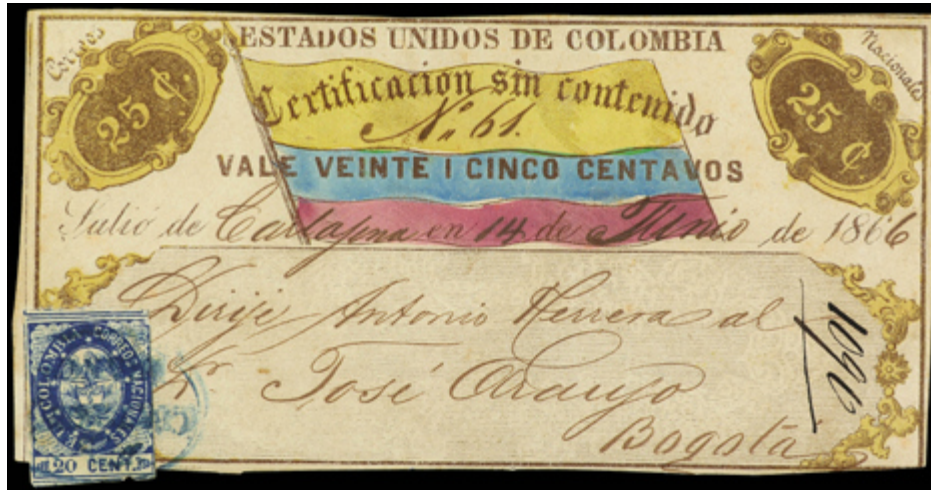 ESTADOS UNIDOS DE COLOMBIA
Correos
Nacionales
25 ₵
Certificacion sin contenido
25 ₵
No. 61.
VALE VEINTE I CINCO CENTAVOS
Salió de Cartagena en 14 de Junio de 1866
Dirije Antonio Herrera al
Sr José Araujo
Bogotá
E.U. DE COLOMBIA CORREOS NACIONALES
20 CENT.